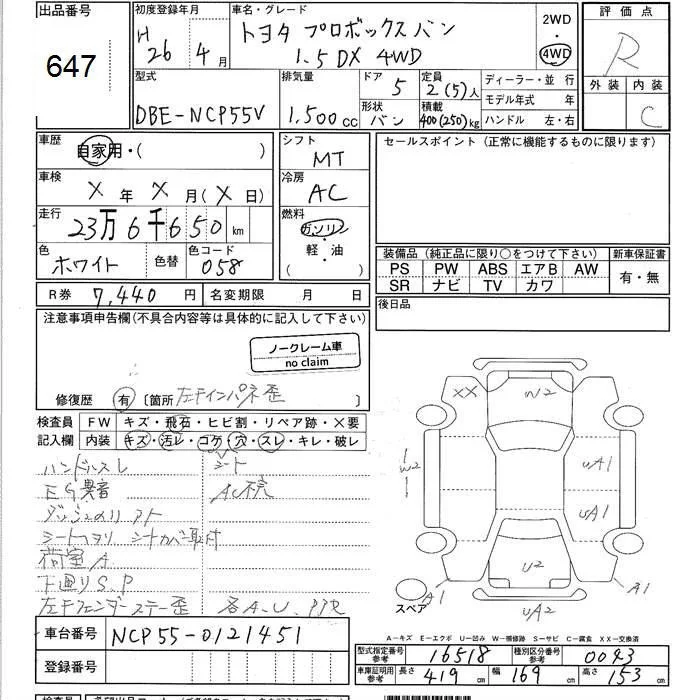 出品番号
647
初度登録年月
H 26年 4月
車名・グレード
トヨタ プロボックスバン
1.5 DX 4WD
2WD
・
4WD
評価点
R
外装 内装
C
型式
DBE-NCP55V
排気量
1,500 cc
ドア
5
形状
バン
定員
2(5)人
積載
400(250)kg
ディーラー・並行
モデル年式 年
ハンドル 左・右
車歴
自家用・( )
車検
X年 X月(X日)
走行
23万6千650 km
色
ホワイト
色替
色コード
058
シフト
MT
冷房
AC
燃料
ガソリン
軽・油
( )
セールスポイント(正常に機能するものに限ります)
装備品(純正品に限り○をつけて下さい)
PS PW ABS エアB AW
SR ナビ TV カワ
新車保証書
有・無
R券 7,440円
名変期限 月 日
後日品
注意事項申告欄(不具合内容等は具体的に記入して下さい)
ノークレーム車
no claim
修復歴 有 〔箇所 左F インパネ歪 〕
検査員
記入欄
FW キズ・飛石・ヒビ割・リペア跡・X要
内装 キズ・汚レ・コゲ・穴・スレ・キレ・破レ
ハンドルスレ
シート
EG異音
AC
シートヘタリ シートカバー取付
荷室A
下廻りS.P
左Fフェンダーステー歪
各A.U
XX
W2
W2
uA1
uA1
U2
A1
A1
uA2
スペア
A-キズ E-エクボ U-凹み W-補修跡 S-サビ C-腐食 XX-交換済
車台番号 NCP55-0121451
登録番号
型式指定番号
参考
16518
種別区分番号
参考
0043
車庫証明用
参考
長さ 419 cm
幅 169 cm
高さ 153 cm